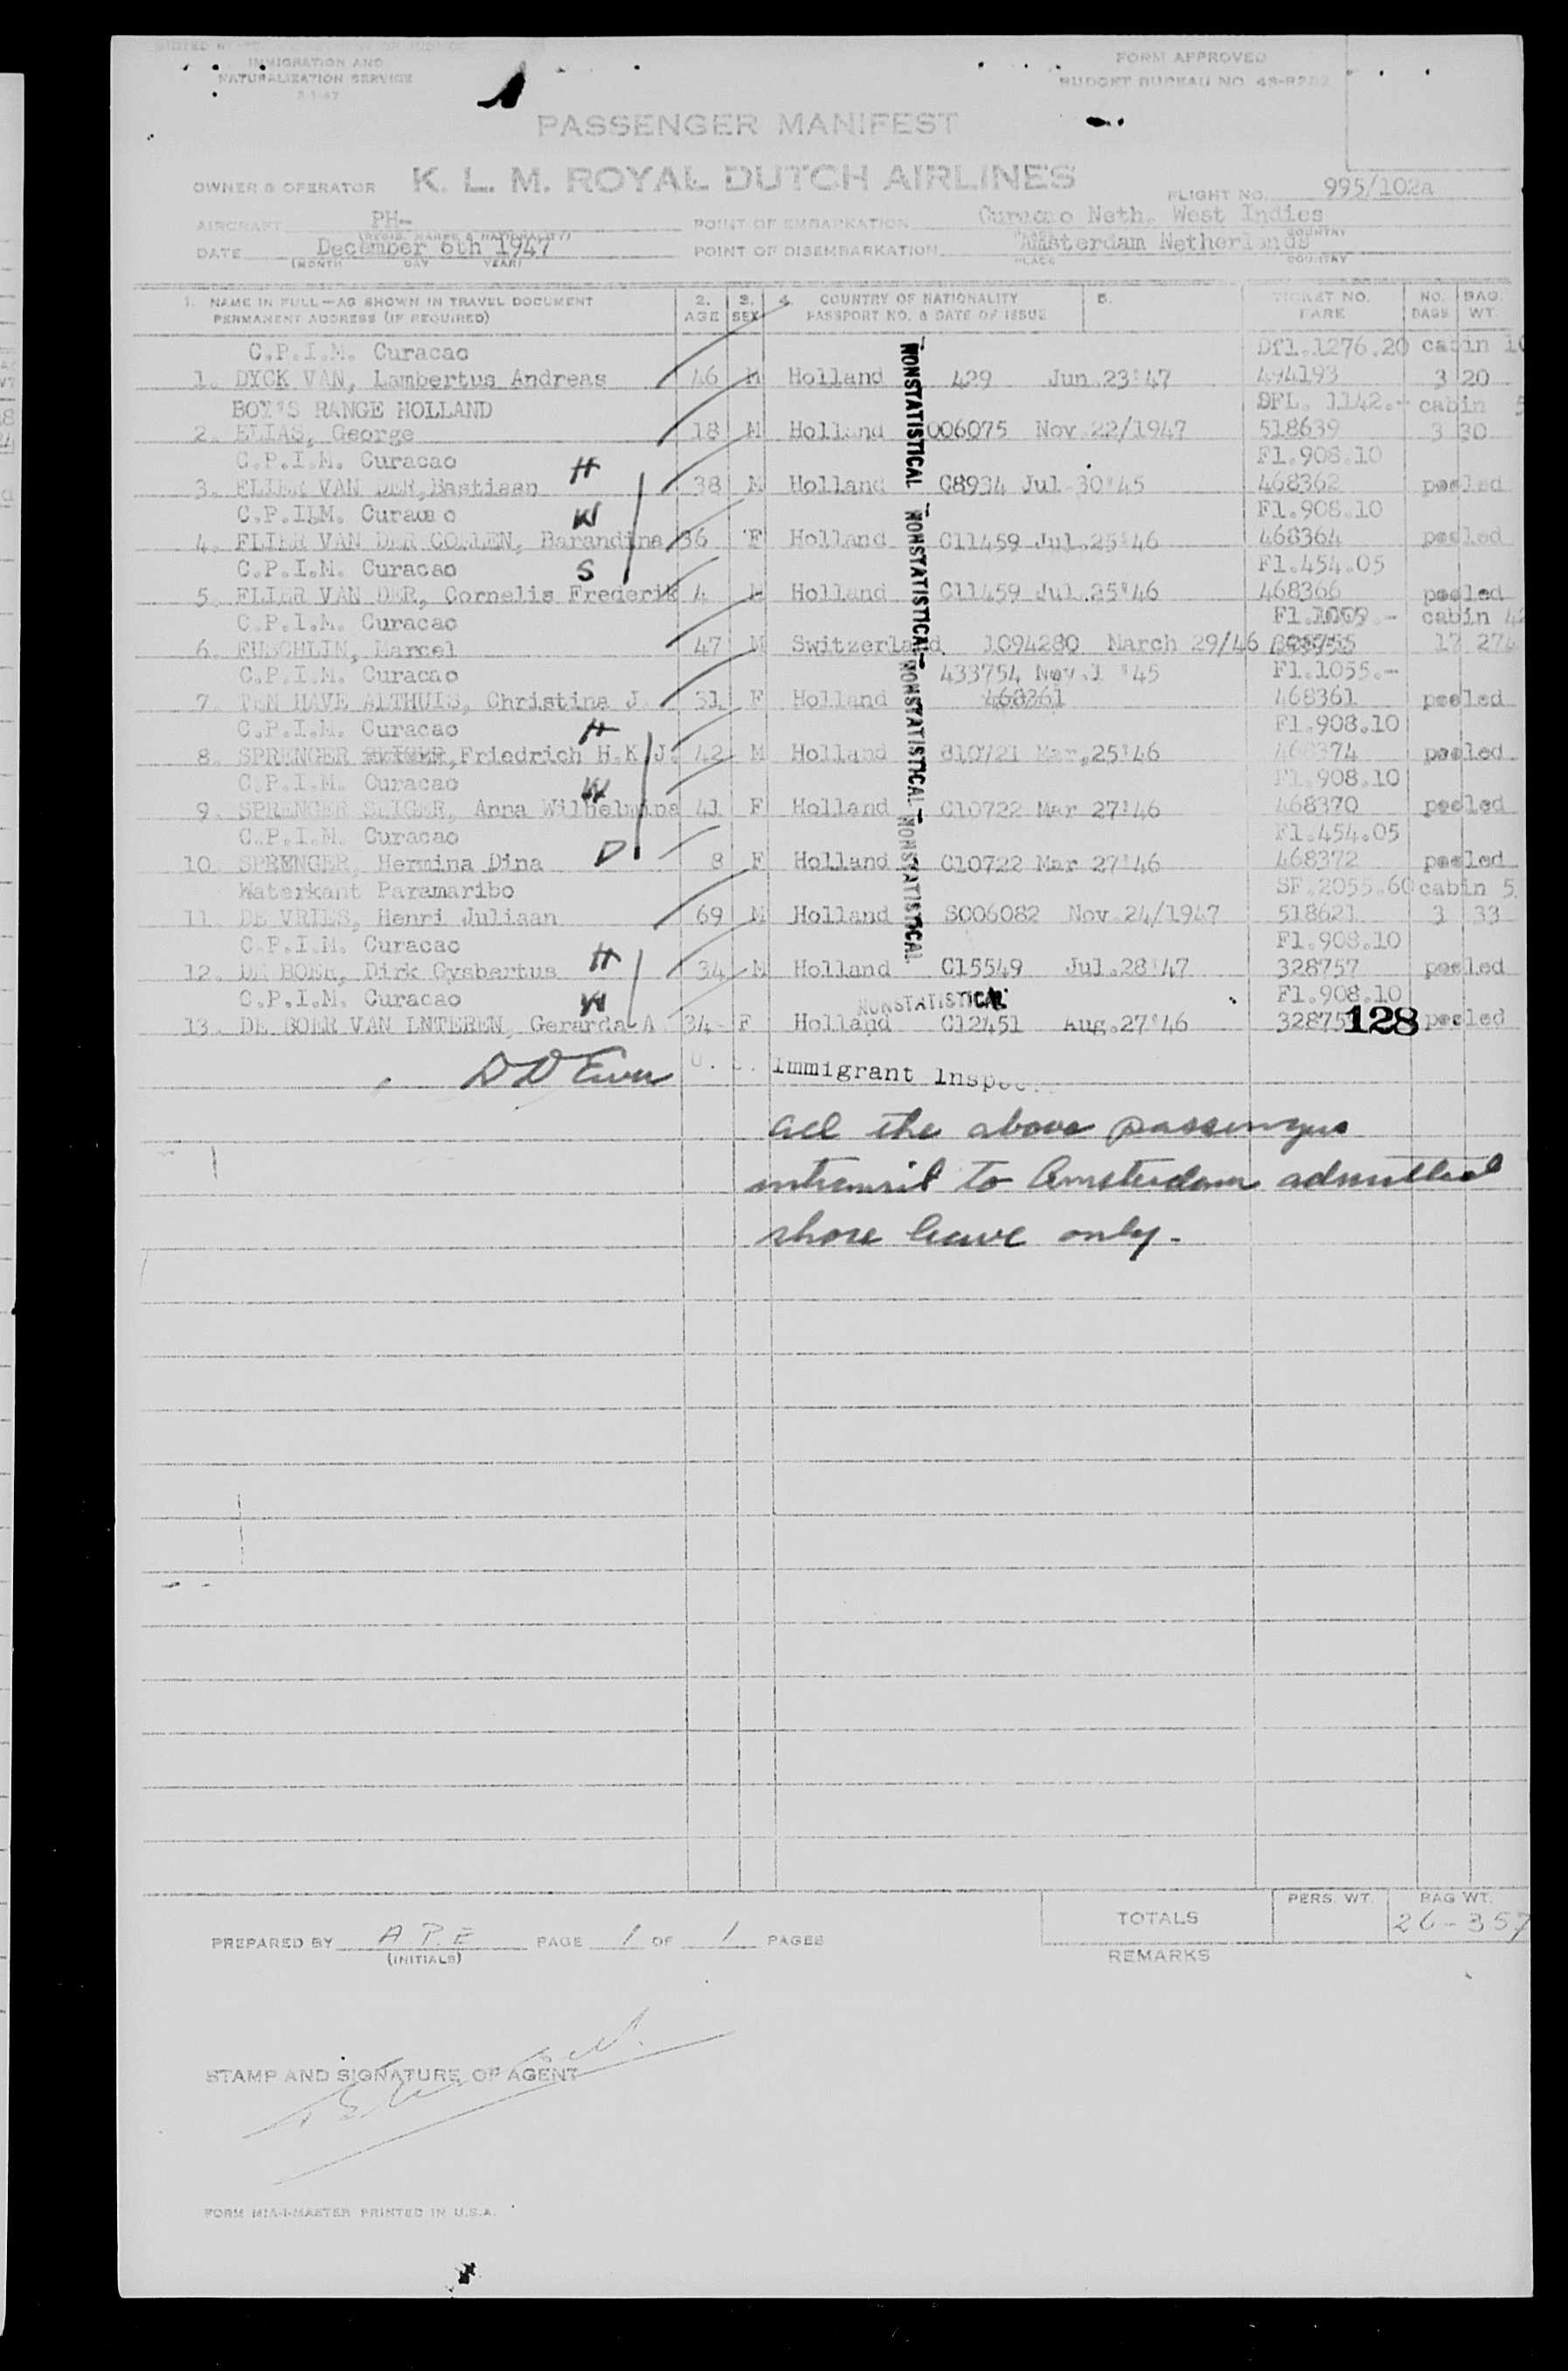 IMMIGRATION AND
NATURALIZATION SERVICE
FORM APPROVED
BUDGET BUREAU NO. 43-R202
PASSENGER MANIFEST
OWNER & OPERATOR K. L. M. ROYAL DUTCH AIRLINES FLIGHT NO. 995/102a
AIRCRAFT PH- POINT OF EMBARKATION Curacao Neth. West Indies
(REGIS. MARKS & NATIONALITY) PLACE COUNTRY
DATE December 6th 1947 POINT OF DISEMBARKATION Amsterdam Netherlands
(MONTH DAY YEAR) PLACE COUNTRY
1. NAME IN FULL—AS SHOWN IN TRAVEL DOCUMENT 2. 3. 4. COUNTRY OF NATIONALITY 5. TICKET NO. NO. BAG.
PERMANENT ADDRESS (IF REQUIRED) AGE SEX PASSPORT NO. & DATE OF ISSUE FARE BAGS WT.
C.P.I.M. Curacao Dfl.1276.20 cabin 10
1. DYCK VAN, Lambertus Andreas 46 M Holland 429 Jun.23'47 494193 3 20
BOY'S RANGE HOLLAND DFL. 1142.- cabin 5
2. ELIAS, George 18 M Holland 006075 Nov.22/1947 518639 3 30
C.P.I.M. Curacao H Fl.908.10
3. FLIER VAN DER, Bastiaan 38 M Holland C8934 Jul-30'45 468362 pooled
C.P.I.M. Curacao W Fl.908.10
4. FLIER VAN DER COELEN, Barandina 36 F Holland C11459 Jul.25'46 468364 pooled
C.P.I.M. Curacao S Fl.454.05
5. FLIER VAN DER, Cornelis Frederik 4 M Holland C11459 Jul.25'46 468366 pooled
C.P.I.M. Curacao Fl.1009.- cabin 42
6. FUSCHLIN, Marcel 47 M Switzerland 1094280 March 29/46 17 274
C.P.I.M. Curacao 433754 Nov.1 '45 Fl.1055.-
7. TEN HAVE ALTHUIS, Christina J. 31 F Holland 468361 468361 pooled
C.P.I.M. Curacao H Fl.908.10
8. SPRENGER, Friedrich H.K.J. 42 M Holland C10721 Mar.25'46 468374 pooled
C.P.I.M. Curacao W Fl.908.10
9. SPRENGER SLIGER, Anna Wilhelmina 41 F Holland C10722 Mar 27'46 468370 pooled
C.P.I.M. Curacao D Fl.454.05
10. SPRENGER, Hermina Dina 8 F Holland C10722 Mar 27'46 468372 pooled
Waterkant Paramaribo SF.2055.60 cabin 5
11. DE VRIES, Henri Juliaan 69 M Holland S006082 Nov.24/1947 518621 3 33
C.P.I.M. Curacao H Fl.908.10
12. DE BOER, Dirk Gysbertus 34 M Holland C15549 Jul.28'47 328757 pooled
C.P.I.M. Curacao W NONSTATISTICAL Fl.908.10
13. DE BOER VAN INTEREN, Gerarda A 34 F Holland C12451 Aug.27'46 32875 128 pooled
NONSTATISTICAL NONSTATISTICAL NONSTATISTICAL NONSTATISTICAL
Immigrant Inspec
all the above passengers
intransit to Amsterdam admitted
shore leave only.
PERS. WT. BAG WT.
TOTALS 26-357
PREPARED BY A.P.E PAGE 1 OF 1 PAGES
(INITIALS)
REMARKS
STAMP AND SIGNATURE OF AGENT
FORM MIA-1-MASTER PRINTED IN U.S.A.